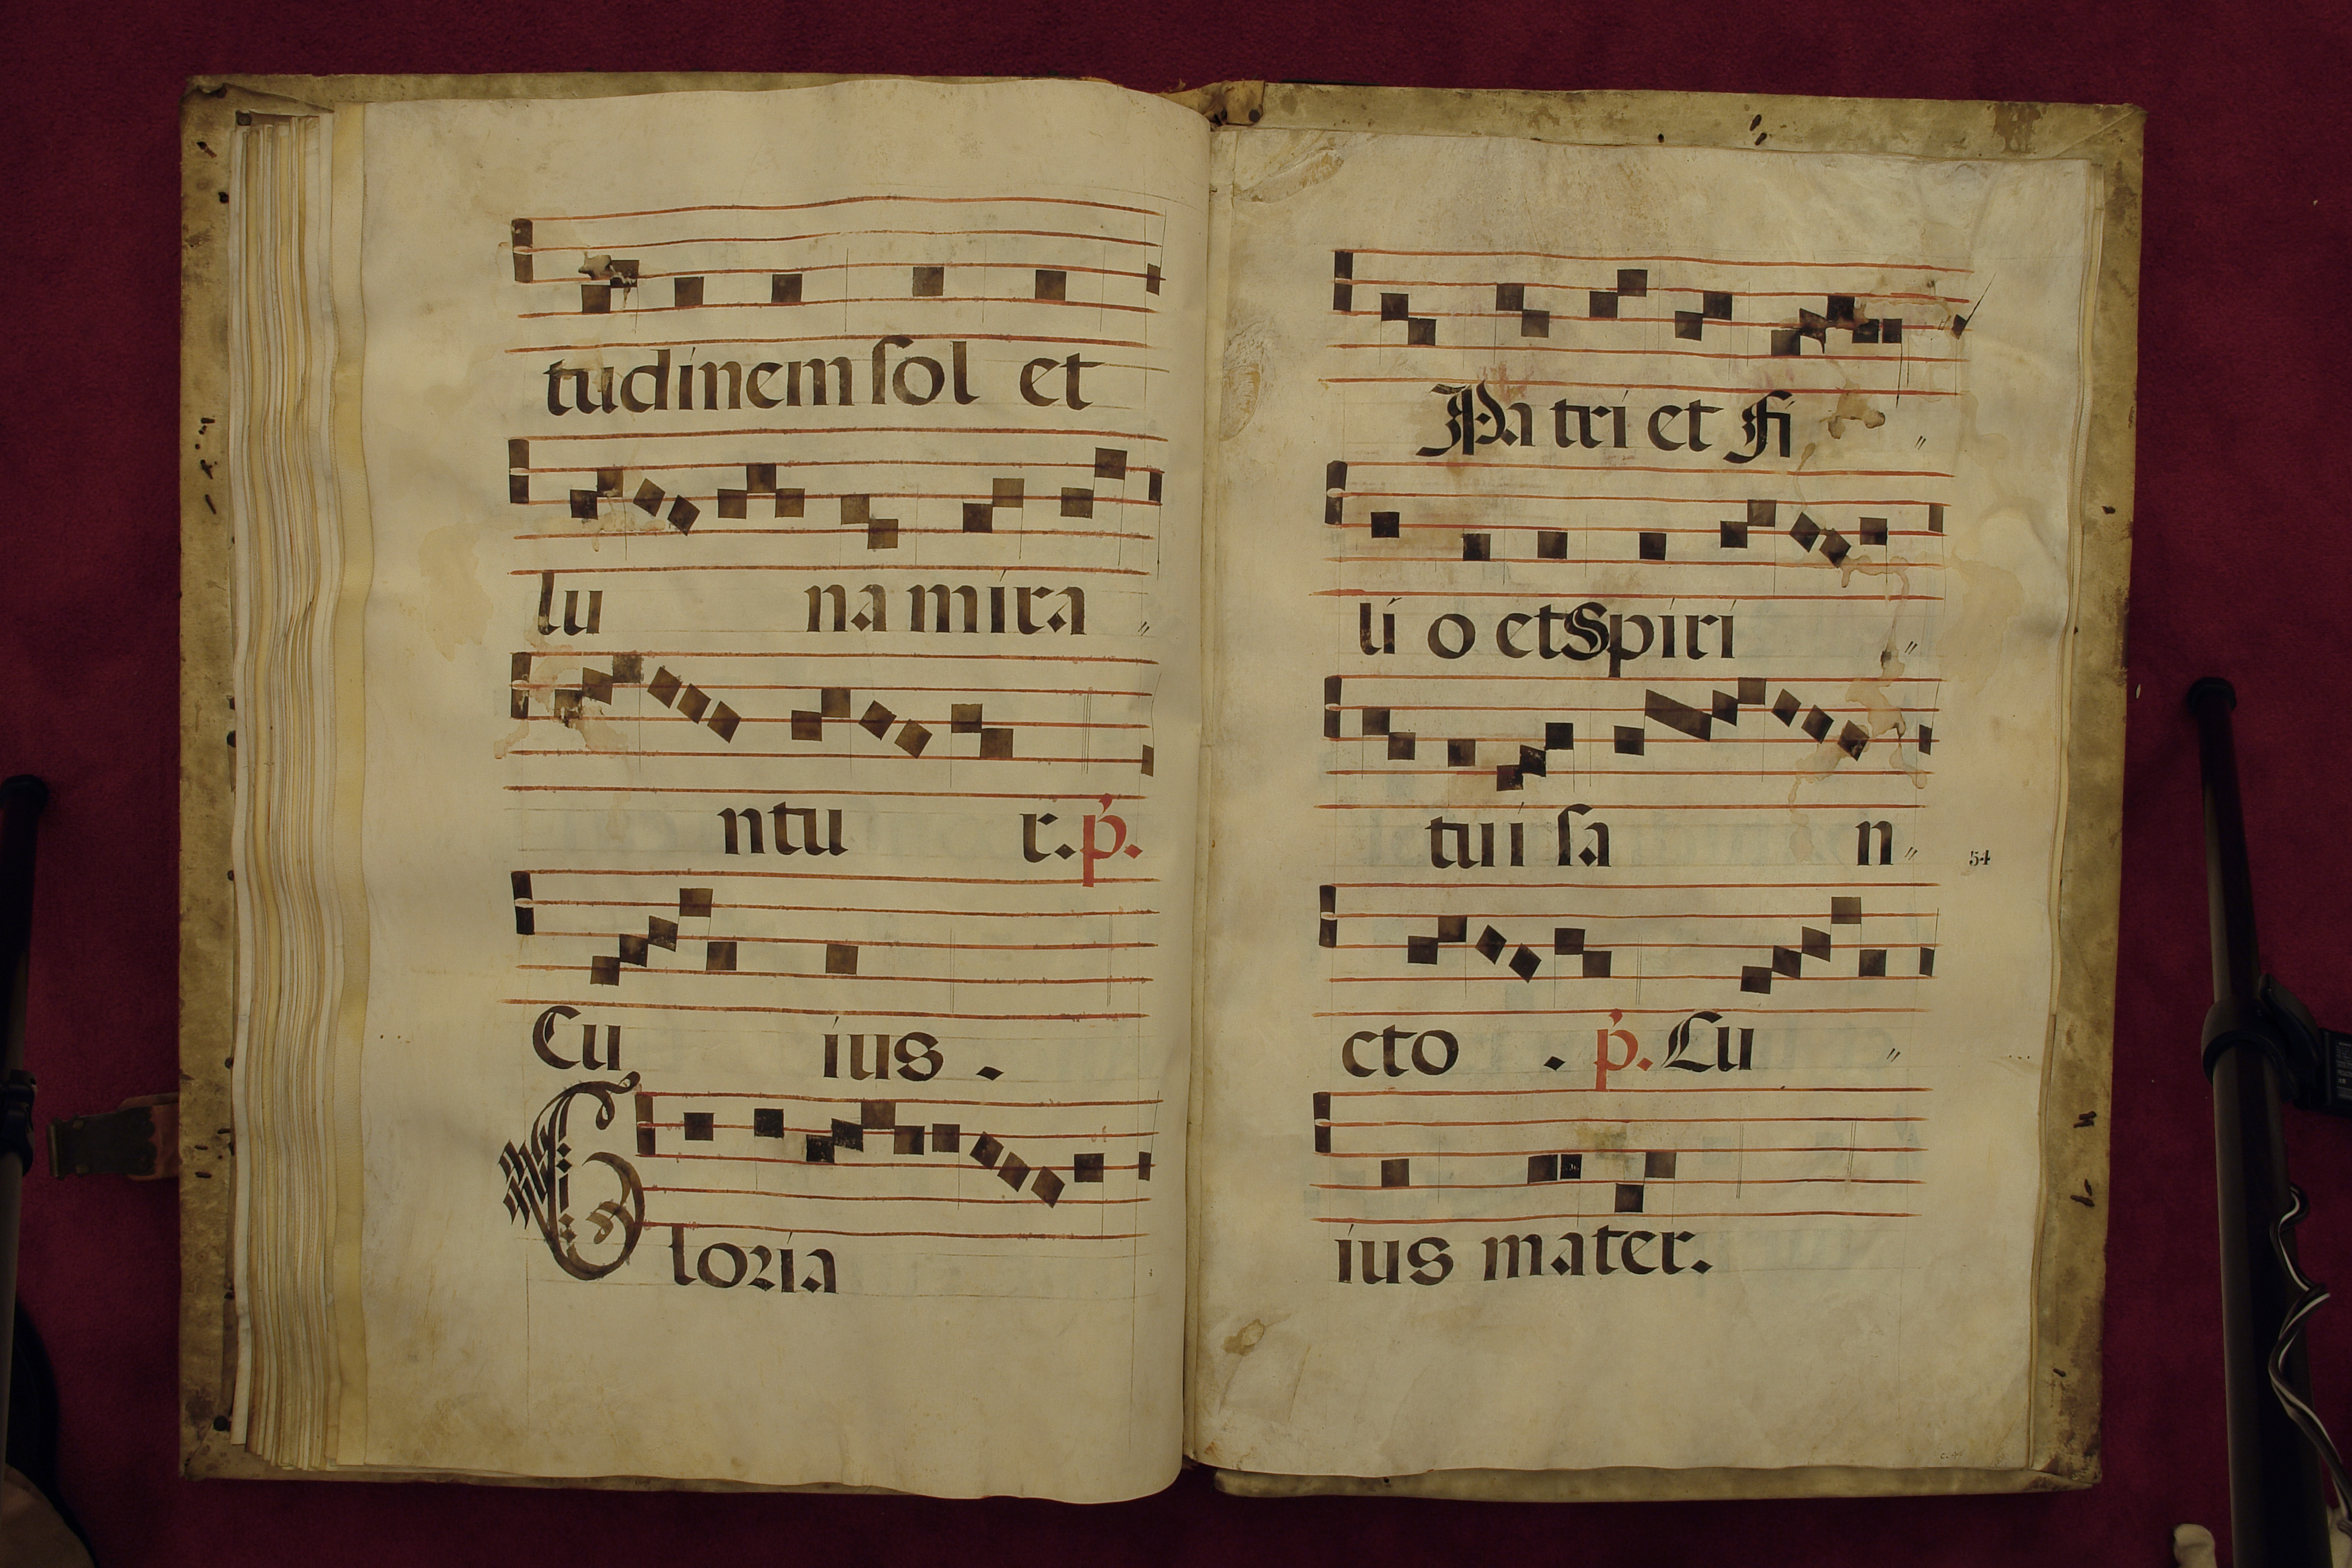 tudinem sol et
lu na mira
ntu r. p.
Cu ius .
Gloria
Pa tri et Fi
li o et Spiri
tui sa n
54
cto . p. Cu
ius mater.